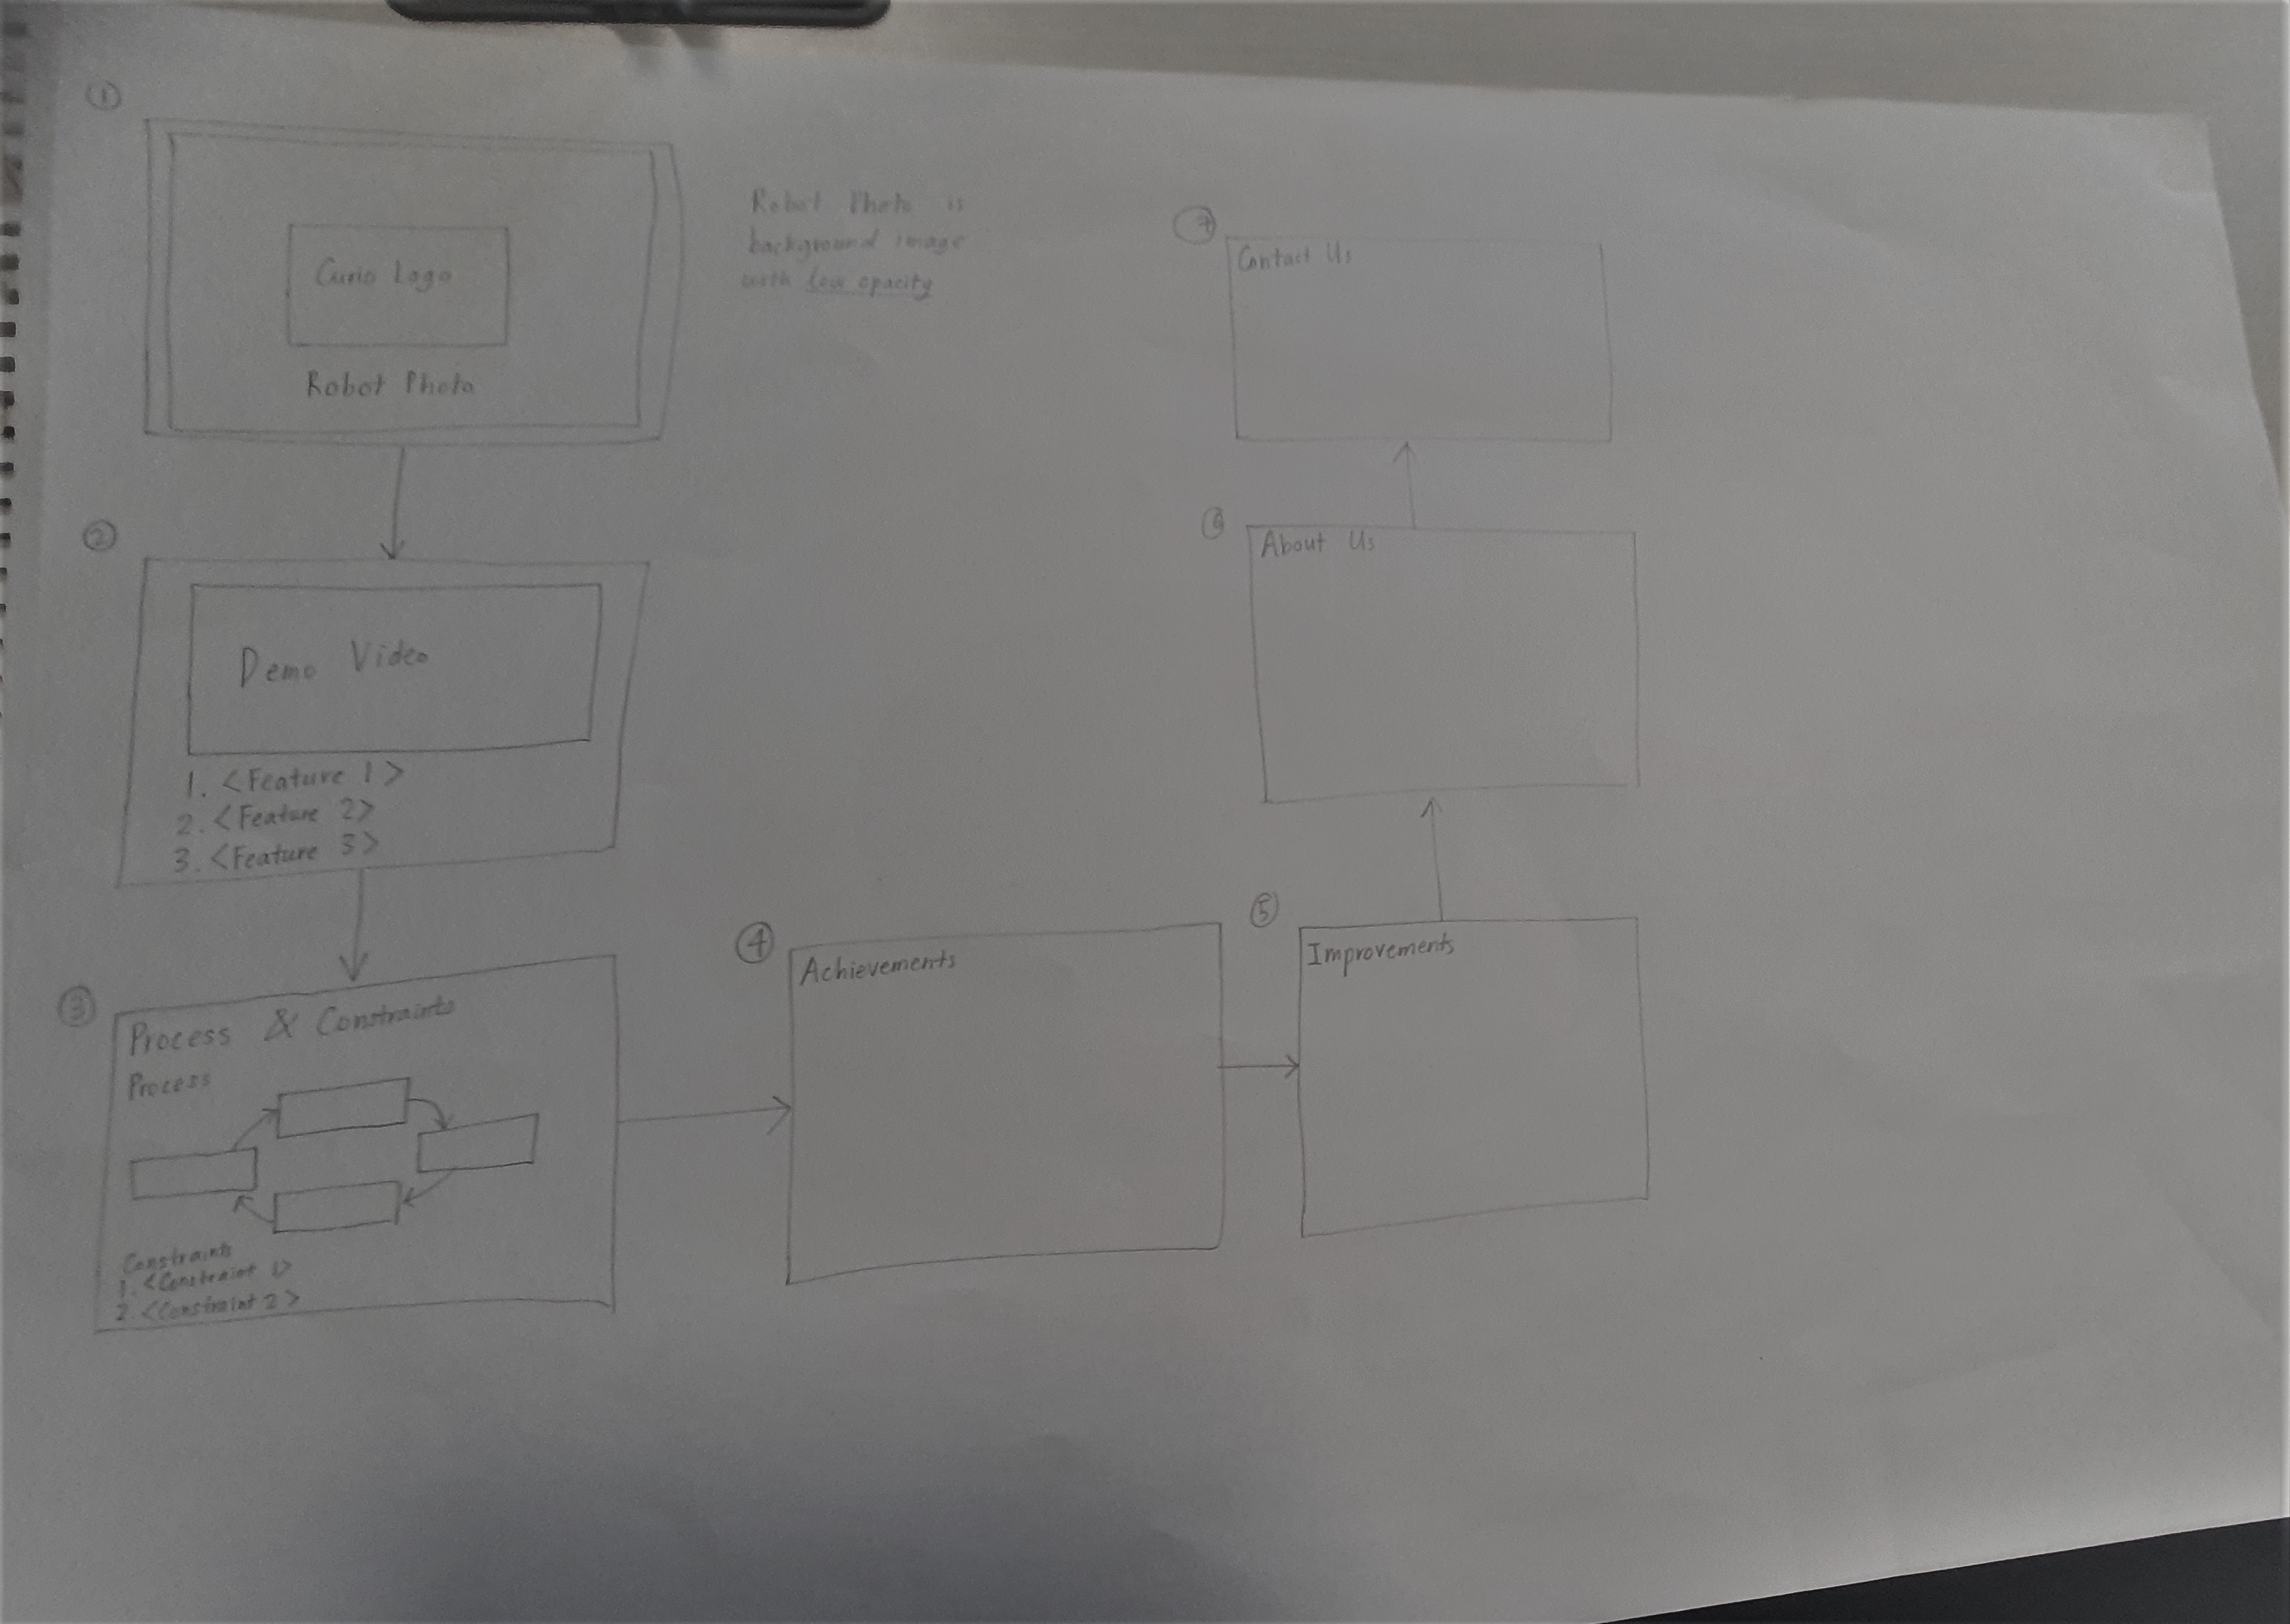 ①
Curio Logo
Robot Photo
Robot Photo is
background image
with low opacity
②
Demo Video
1. <Feature 1>
2. <Feature 2>
3. <Feature 3>
③
Process & Constraints
Process
Constraints
1. <Constraint 1>
2. <Constraint 2>
④
Achievements
⑤
Improvements
⑥
About Us
⑦
Contact Us